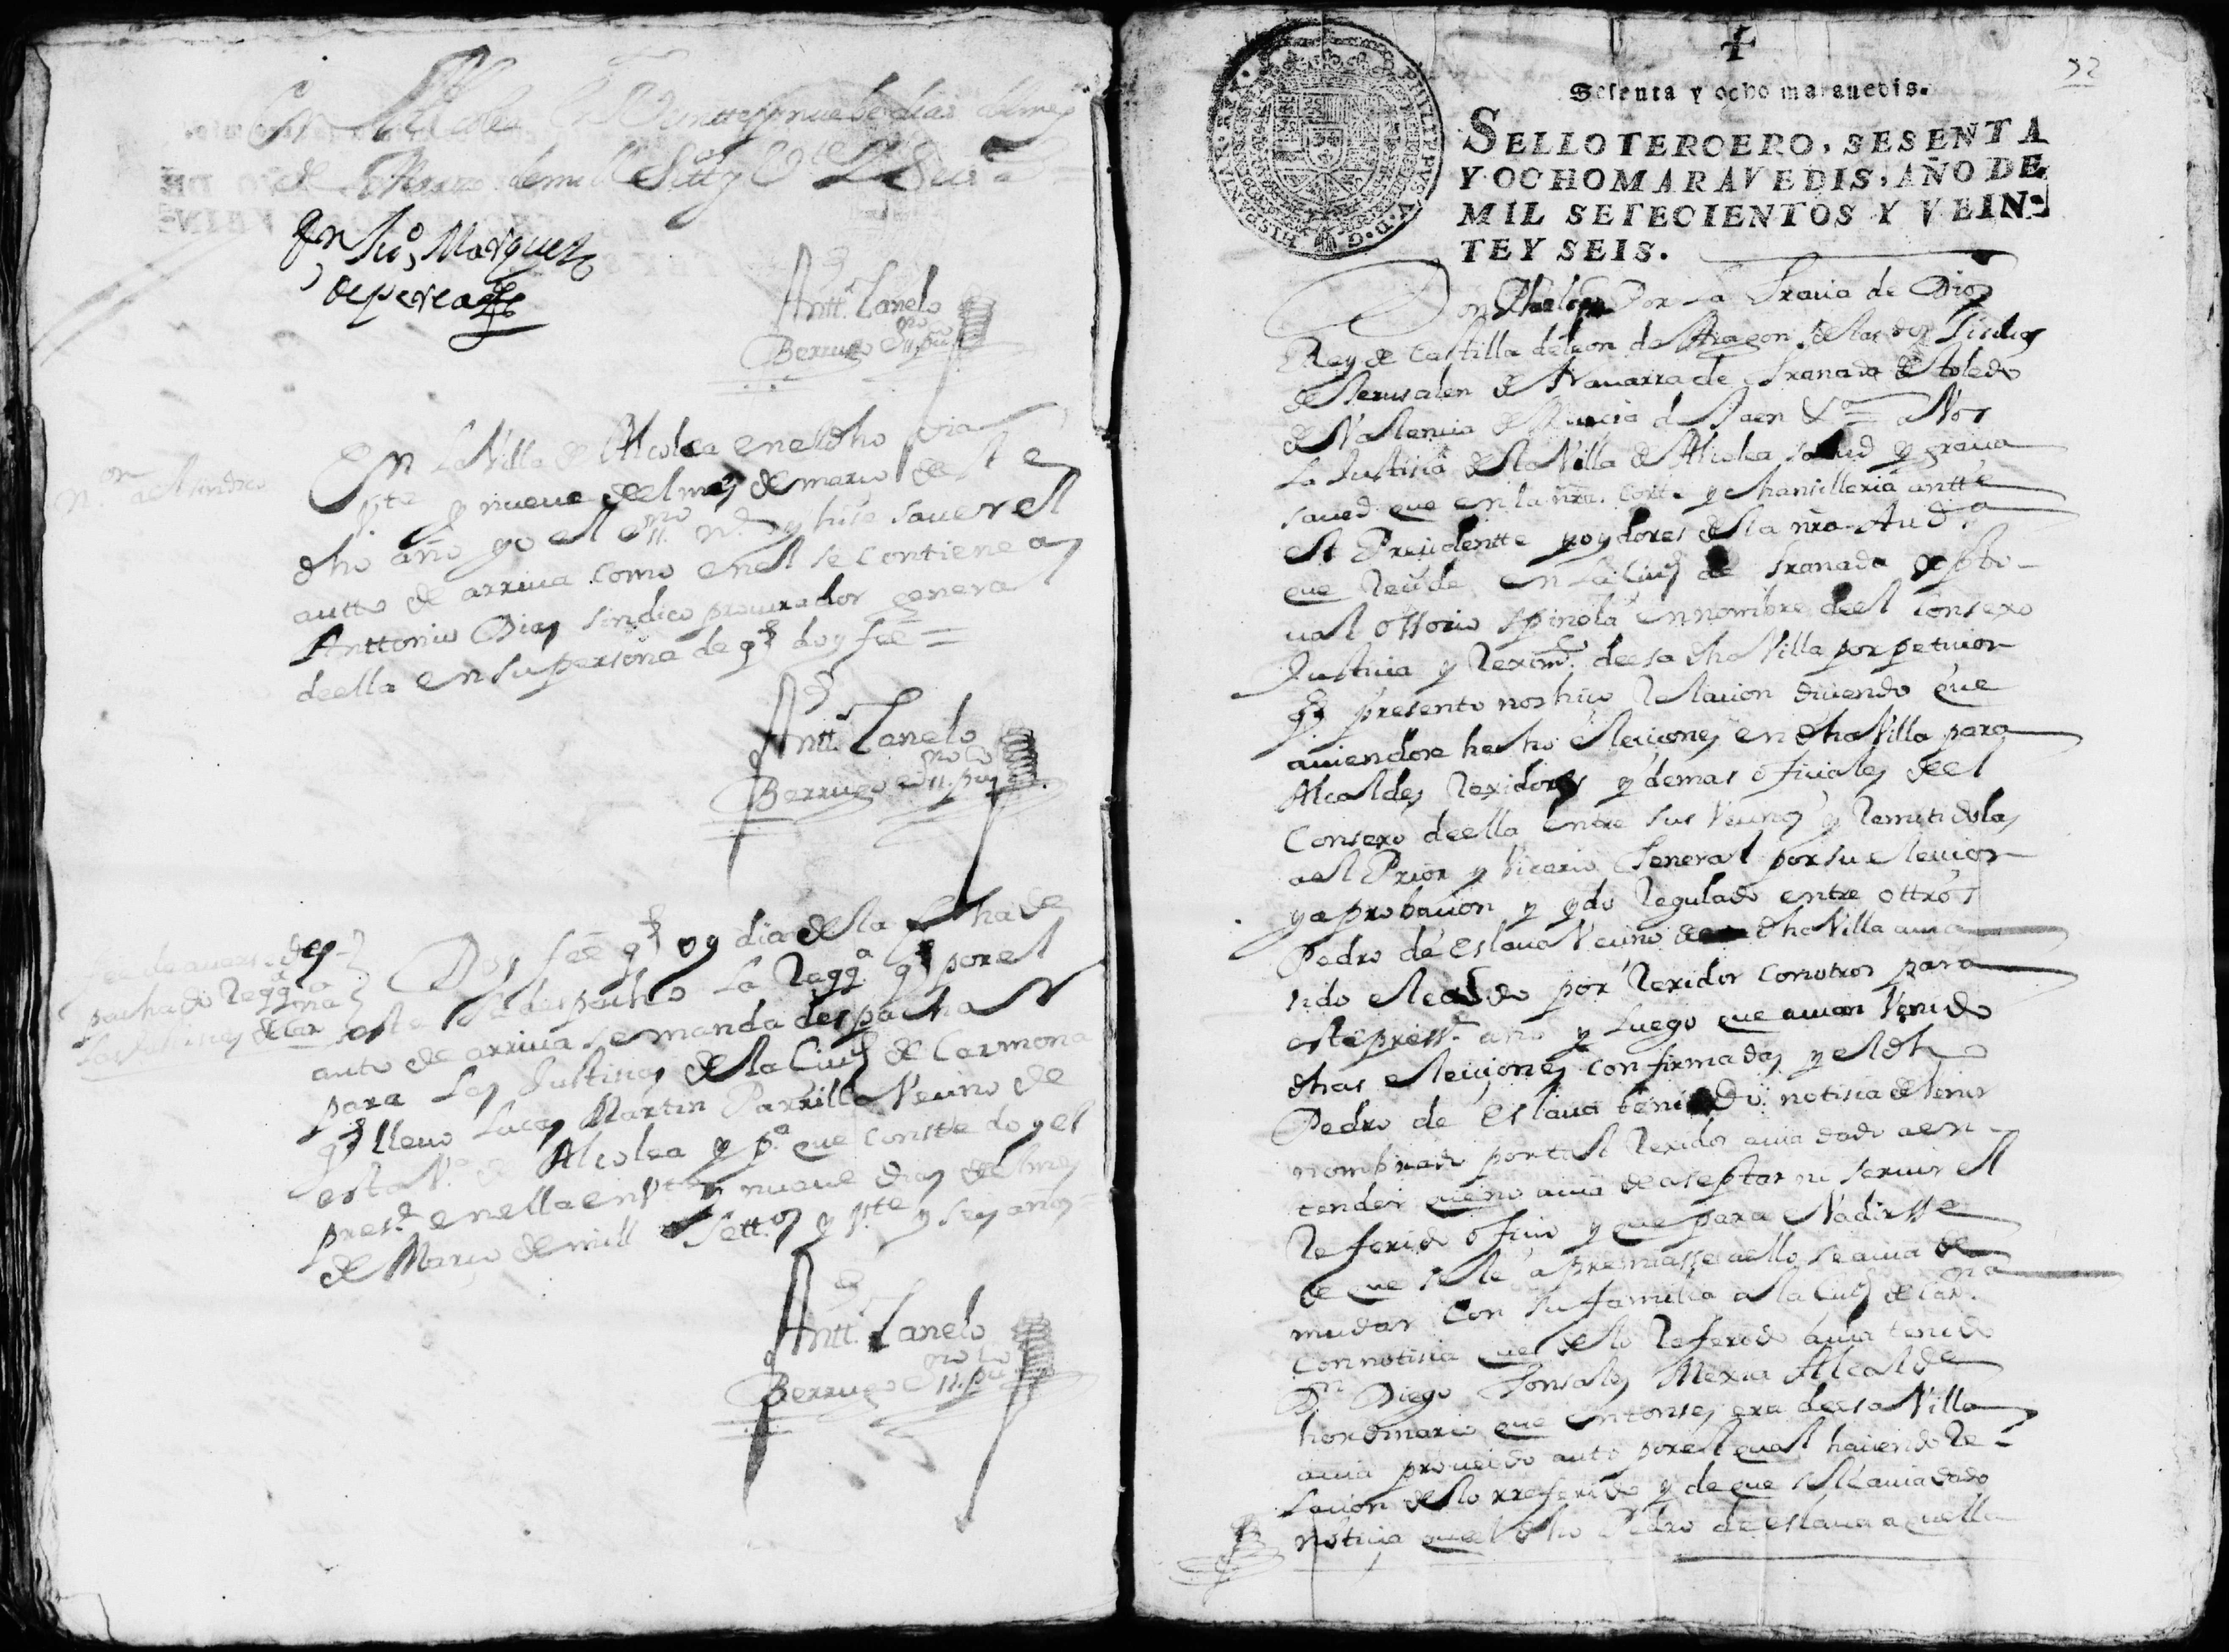 En Alcolea En Veintte y nuebe dias del mes
de Marzo de mill Sett.os y Vte y Seis a.s =
Fran.co Marquez
de perea
Antt.o Canelo
Berrugo essno pu.co
n.on al sindico
En la Villa de Alcolea en el dho dia
Vte y nueve de el mes de marzo de este
dho año yo el essno n.e y hise saver el
autto de arriva como en el se contiene a
Anttonio Dias sindico procurador general
de ella en su persona de q doy fee =
Antt.o Canelo
Berrugo essno pu.co
fee de aver des-
pachado Reqq.a a
las Justicias de Car.na
Doy fee q oy dia de la fha de
este se despacho la Reqq.a q por el
auto de arriva se manda despachar
para las Justicias de la Ciud de Carmona
q llevo Lucas Martin Parrilla Vecino de
esta V.a de Alcolea y p.a que conste doy el
pres.te en ella en Vte y nueve dias de el mes
de Marzo de mill Sett.os y Vte y seis años =
Antt.o Canelo
Berrugo essno pu.co
32
Sesenta y ocho marauedis.
SELLO TERCERO, SESENTA
Y OCHO MARAVEDIS, AÑO DE
MIL SETECIENTOS Y VEIN-
TE Y SEIS.
PHILIPPUS V. D. G. HISPANIAR. REX
Don Phelipe Por la Gracia de Dios
Rey de Castilla de leon de Aragon de las dos Sicilias
de Jerusalen de Navarra de Granada de toledo
de Valencia de Murcia de Jaen &a = a Vos
La Justicia de la Villa de Alcolea salud y gracia
saved que en la nra. Corte y chansilleria antte
el Presidentte y oydores de la nra Aud.a
que Recide en la Ciud de Granada xptō-
ual ossorio Spinola en nombre de el Consexo
Justicia y Reximto de esa dha Villa por peticion
q presento nos hiço Relacion diciendo que
aviendose hecho elecciones en dha Villa para
Alcaldes Rexidores y demas oficiales de el
Consexo de ella entre sus Vecinos y Remitidolas
a el Prior y Vicario General por su eleccion
y aprobacion y ydo Regulado entre ottros
Pedro de Eslava Vecino de dha Villa avia
sido electdo por Rexidor con otros para
este press.te año y luego que avian Venido
dhas elecciones confirmadas y el dho
Pedro de Eslava tenido notisia de venir
nombrado por tal Rexidor avia dado a en-
tender que no avia de aseptar ni servir el
Referido oficio y que para evadirsse
de que se le apremiasse a ello se avia de
mudar Con su familia a la Ciud de Car.na
con notisia que de lo Referido avia tenido
Dn Diego Gonsales Mexia Alcalde
hordinario que entonses era de esa Villa
avia proveido auto por el qual haciendo Re-
lacion de lo rreferido y de que se le avia dado
noticia que el dho Pedro de eslava aquella